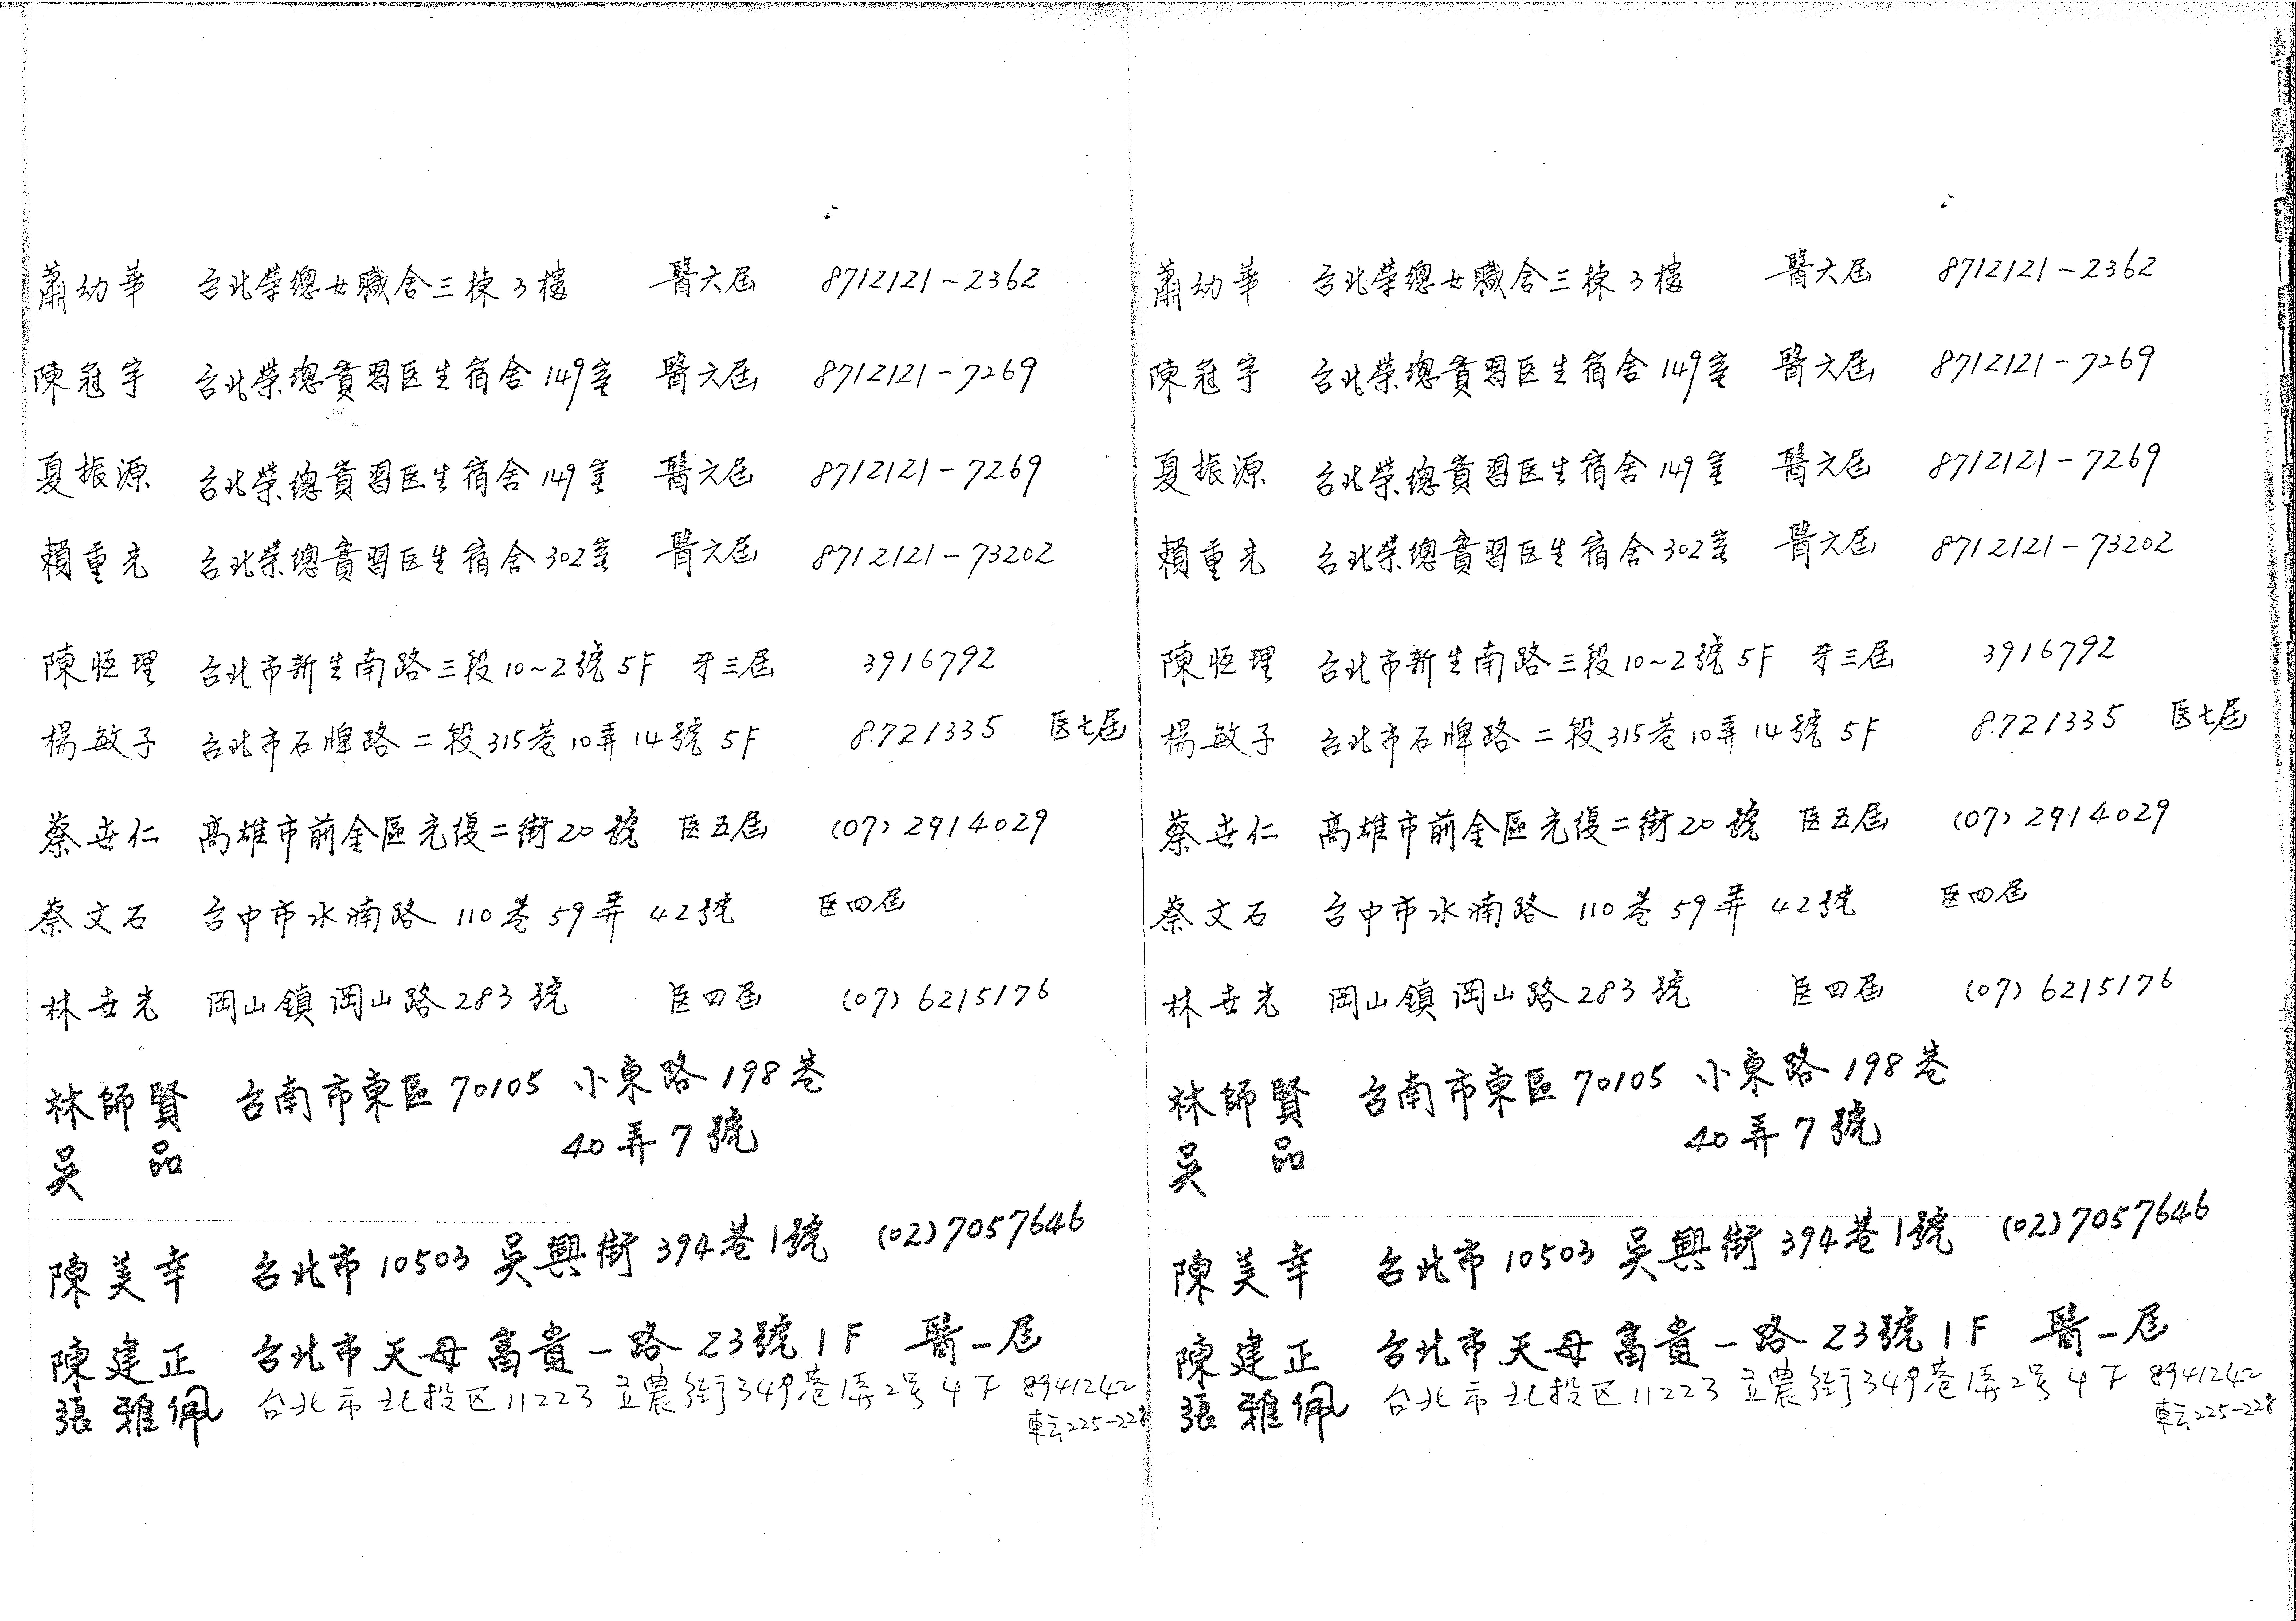 蕭幼華 台北榮總女職舍三棟3樓 醫六屆 8712121-2362
陳冠宇 台北榮總實習医生宿舍149室 醫六屆 8712121-7269
夏振源 台北榮總實習医生宿舍149室 醫六屆 8712121-7269
賴重光 台北榮總實習医生宿舍302室 醫六屆 8712121-73202
陳恒理 台北市新生南路三段10~2號5F 牙三屆 3916792
楊敏子 台北市石牌路二段315巷10弄14號5F 8721335 医七屆
蔡世仁 高雄市前金區光復二街20號 医五屆 (07)2914029
蔡文石 台中市水湳路110巷59弄42號 医四屆
林世光 岡山鎮岡山路283號 医四屆 (07)6215176
林師賢 台南市東區70105 小東路198巷
40弄7號
吳品
陳美幸 台北市10503 吳興街394巷1號 (02)7057646
陳建正 台北市天母富貴一路23號1F 醫一屆
張雅佩 台北市北投区11223 立農街349巷1弄2号4F 8941242
轉225-228
蕭幼華 台北榮總女職舍三棟3樓 醫六屆 8712121-2362
陳冠宇 台北榮總實習医生宿舍149室 醫六屆 8712121-7269
夏振源 台北榮總實習医生宿舍149室 醫六屆 8712121-7269
賴重光 台北榮總實習医生宿舍302室 醫六屆 8712121-73202
陳恒理 台北市新生南路三段10~2號5F 牙三屆 3916792
楊敏子 台北市石牌路二段315巷10弄14號5F 8721335 医七屆
蔡世仁 高雄市前金區光復二街20號 医五屆 (07)2914029
蔡文石 台中市水湳路110巷59弄42號 医四屆
林世光 岡山鎮岡山路283號 医四屆 (07)6215176
林師賢 台南市東區70105 小東路198巷
40弄7號
吳品
陳美幸 台北市10503 吳興街394巷1號 (02)7057646
陳建正 台北市天母富貴一路23號1F 醫一屆
張雅佩 台北市北投区11223 立農街349巷1弄2号4F 8941242
轉225-228